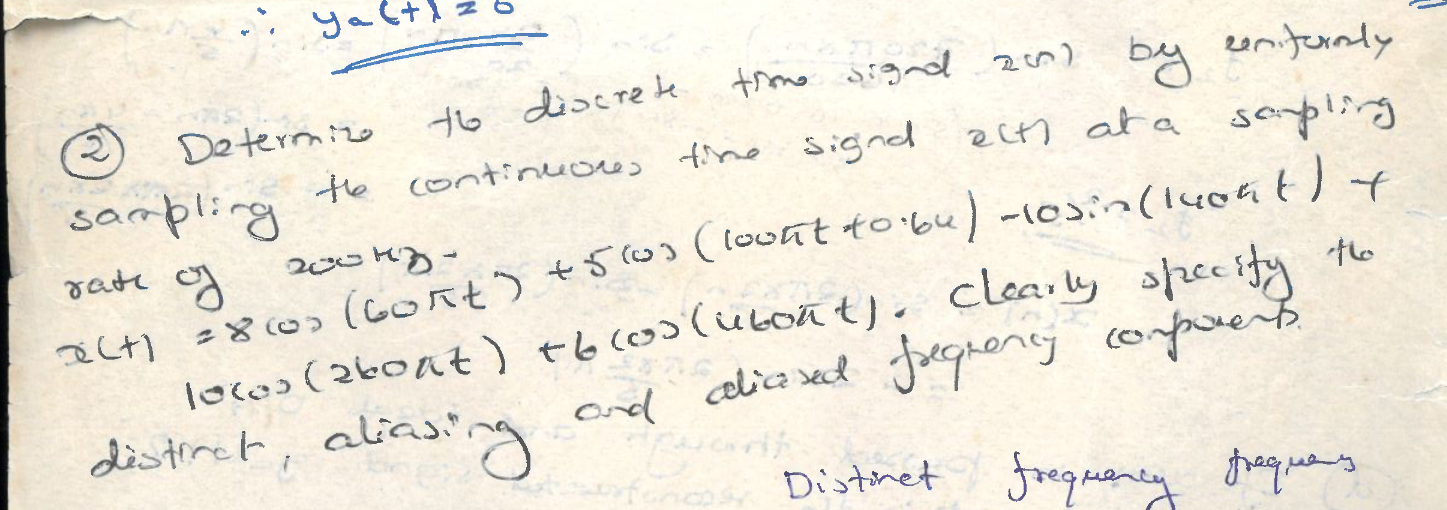 ∴ ya(t) = 0
② Determine the discrete time signal x(n) by uniformly
sampling the continuous time signal x(t) at a sampling
rate of 200Hz.
x(t) = 8 cos (60πt) + 5 cos (100πt + 0.64) - 10 sin (140πt) +
10 cos (260πt) + 6 cos (460πt). Clearly specify the
distinct, aliasing and aliased frequency components.
Distinct frequency frequency